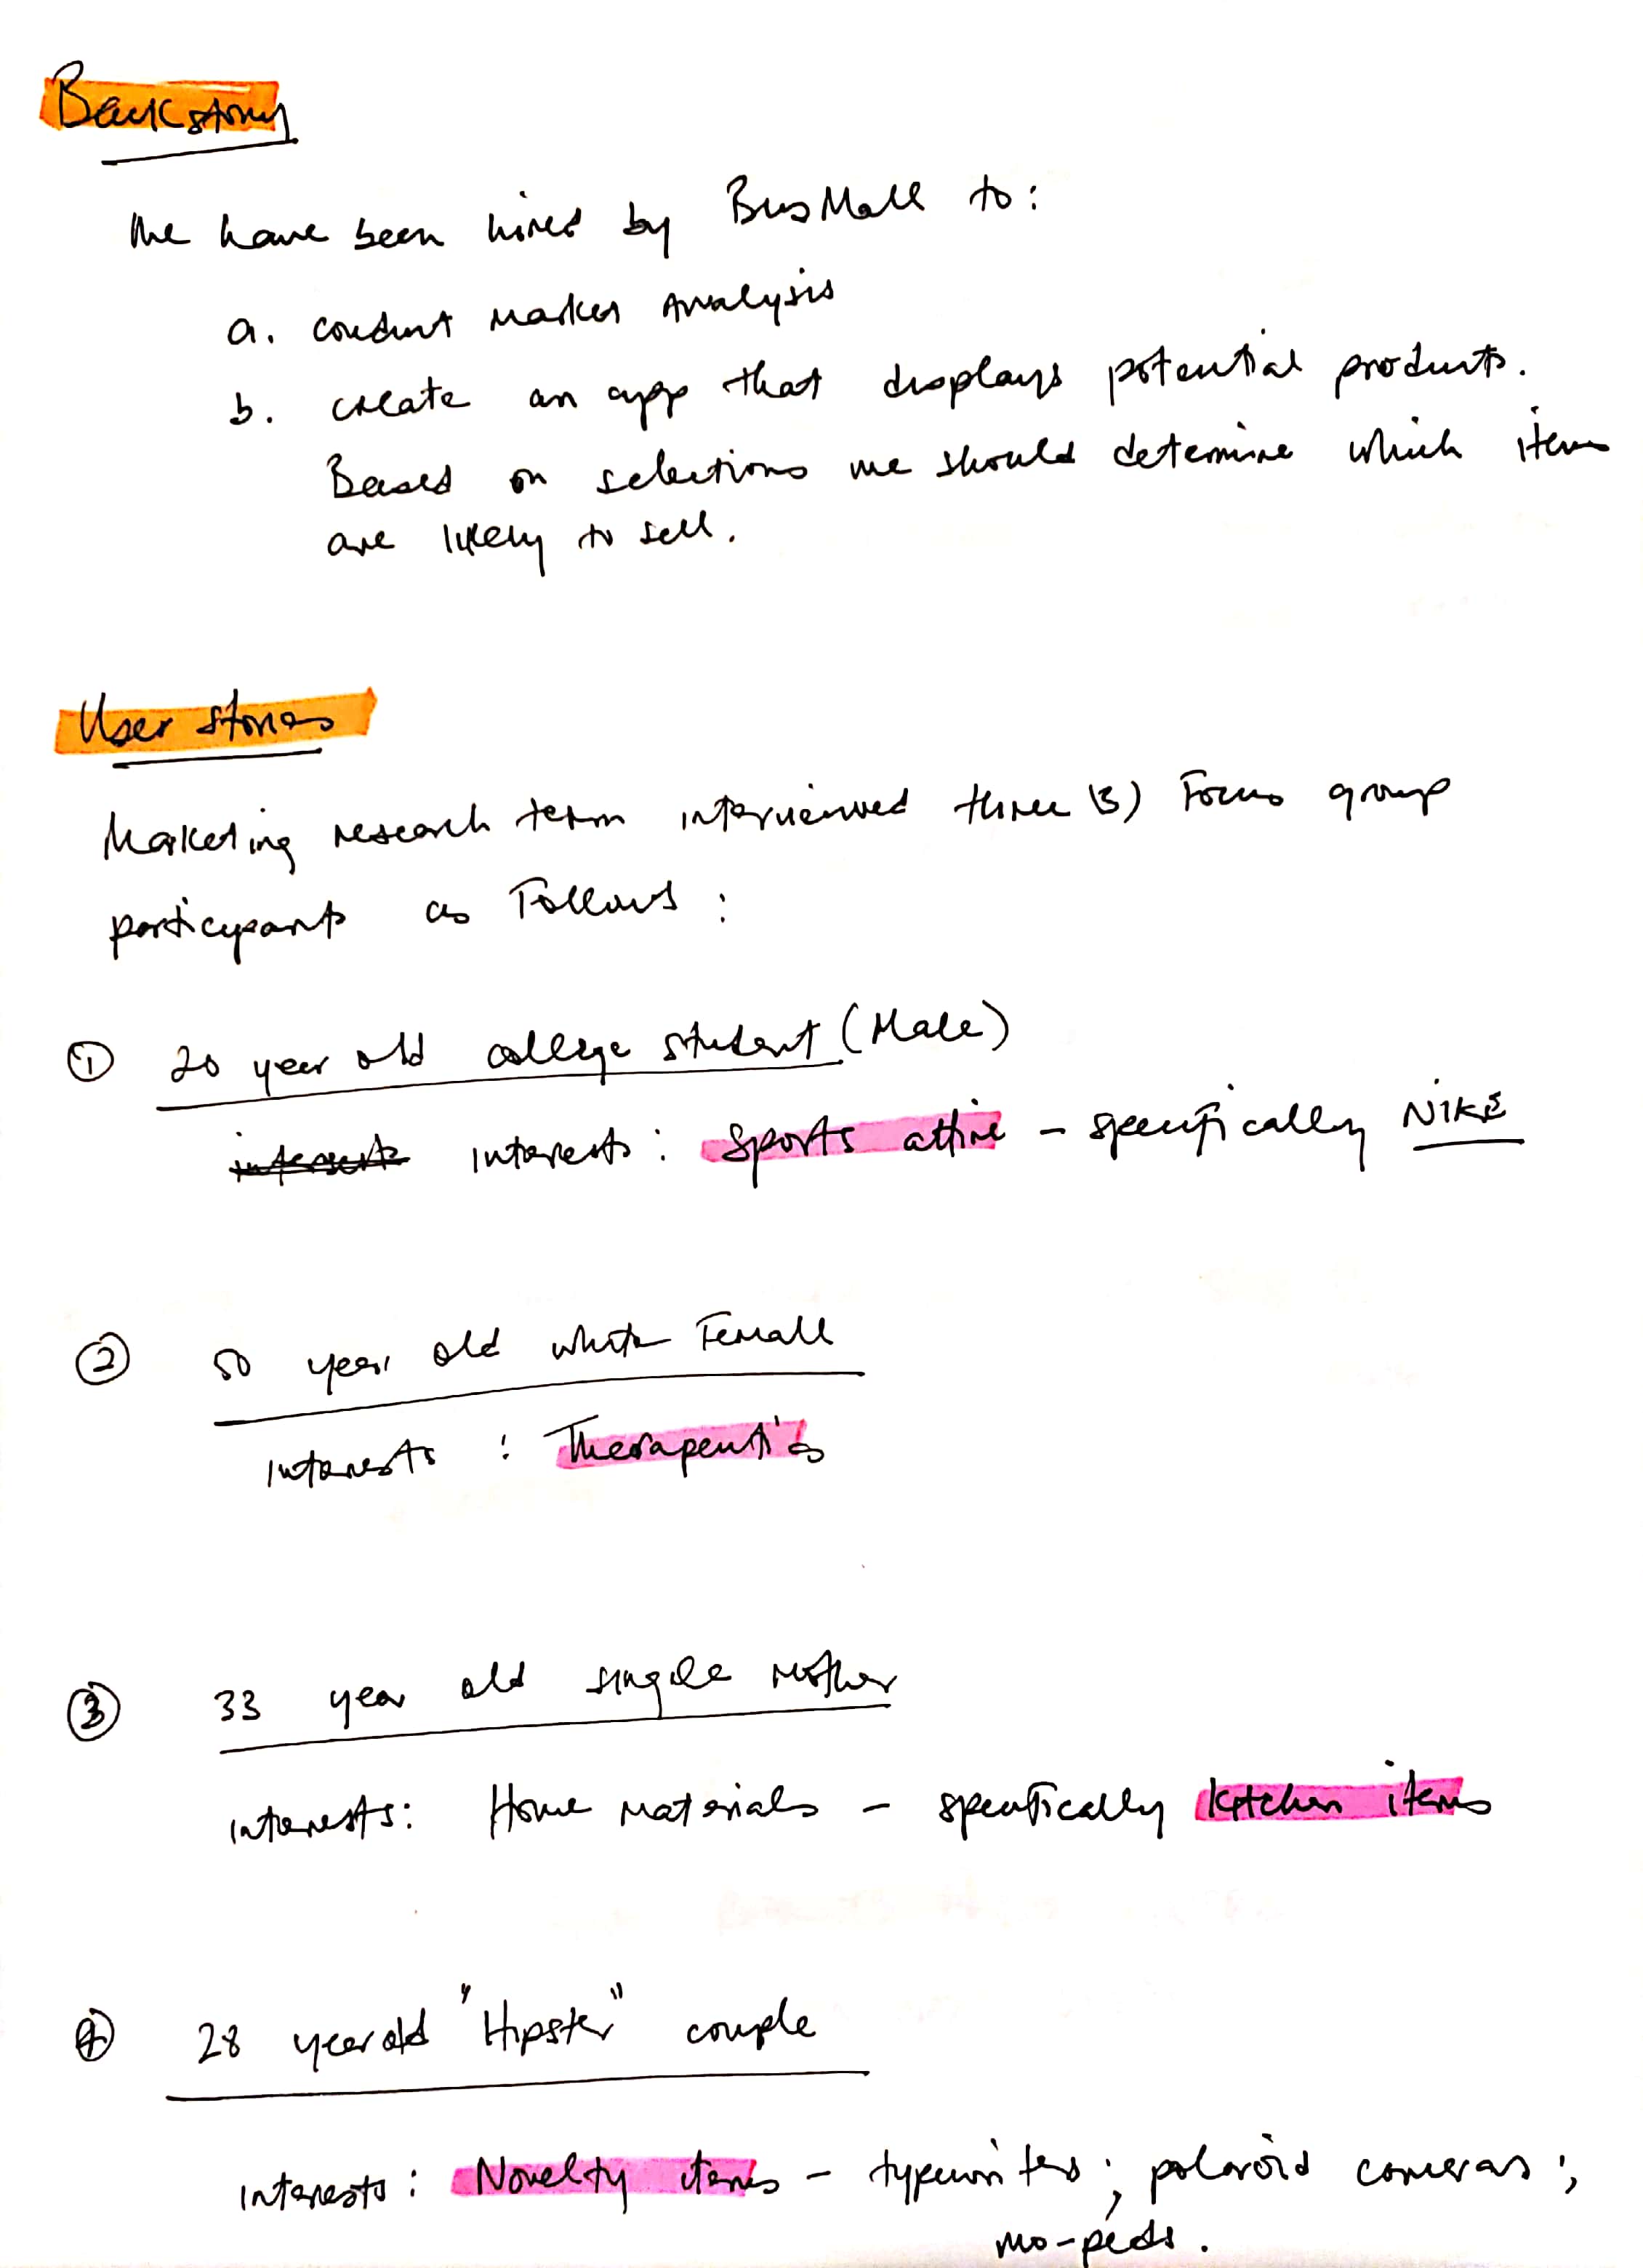 Backstory
We have been hired by BusMall to:
a. conduct Market Analysis
b. create an app that displays potential products.
Based on selections we should determine which items
are likely to sell.
User stories
Marketing research team interviewed three (3) Focus group
participants as Follows :
① 20 year old college student (Male)
interests interests : Sports attire - specifically NIKE
② 50 year old white Female
interests : Therapeutics
③ 33 year old single mother
interests: Home materials - specifically kitchen items
④ 28 year old "Hipster" couple
interests : Novelty items - typewriters ; polaroid cameras ;
mo-peds .